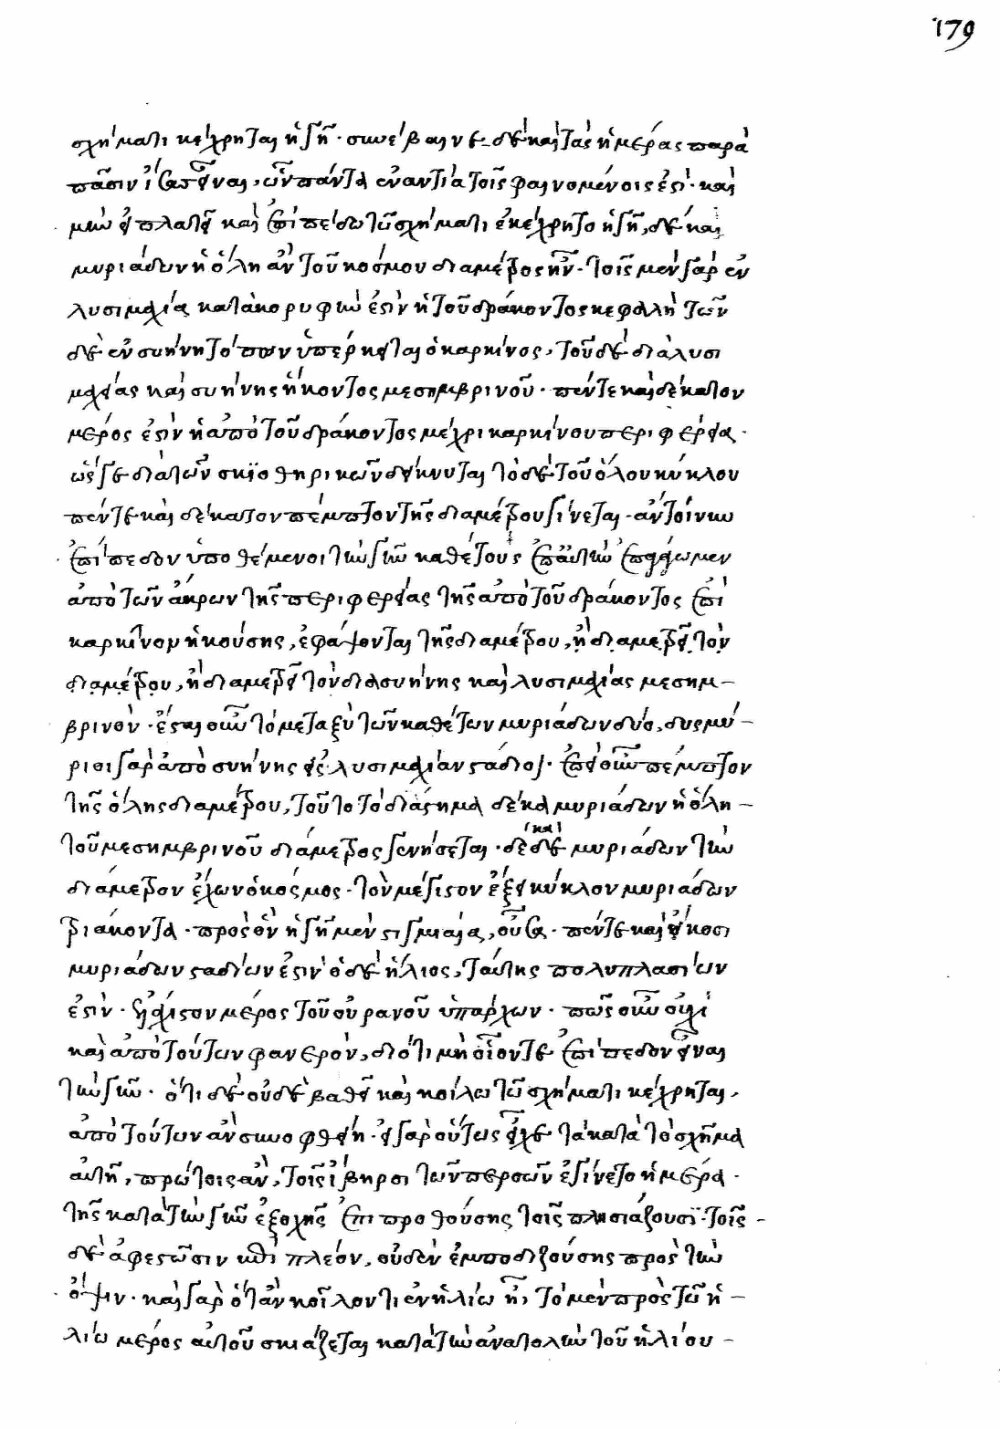 179
σχήματι κέχρηται ἡ γῆ· συνέβαινε δὲ καὶ τὰς ἡμέρας παρὰ
πᾶσιν ἴσας εἶναι, ὧν πάντα ἐναντία τοῖς φαινομένοις ἐστί· καὶ
μὴν εἰ πλατεῖ καὶ ἐπιπέδῳ τῷ σχήματι ἐκέχρητο ἡ γῆ, δέκα
μυριάδων ἡ ὅλη ἂν τοῦ κόσμου διάμετρος ἦν· τοῖς μὲν γὰρ ἐν
λυσιμαχίᾳ κατὰ κορυφήν ἐστιν ἡ τοῦ δράκοντος κεφαλὴ τῶν
δὲ ἐν συήνῃ τόπων ὑπέρκειται ὁ καρκίνος, τοῦ δὲ διὰ λυσι
μαχείας καὶ συήνης ἥκοντος μεσημβρινοῦ· πεντεκαιδέκατον
μέρος ἐστὶν ἡ ἀπὸ τοῦ δράκοντος μέχρι καρκίνου περιφέρεια·
ὥς γε διὰ τῶν σκιοθηρικῶν δείκνυται τὸ δὲ τοῦ ὅλου κύκλου
πεντεκαιδέκατον πέμπτον τῆς διαμέτρου γίνεται· ἂν τοίνυν
ἐπίπεδον ὑποθέμενοι τὴν γῆν καθέτους ἐπ' αὐτὴν ἐπαγάγωμεν
ἀπὸ τῶν ἄκρων τῆς περιφερείας τῆς ἀπὸ τοῦ δράκοντος ἐπὶ
καρκῖνον ἡκούσης, ἐφάψονται τῆς διαμέτρου, ἣ διαμετρεῖ τὸν
διαμέτρου, ἣ διαμετρεῖ τὸν διὰ συήνης καὶ λυσιμαχίας μεσημ-
βρινόν· ἔσται οὖν τὸ μεταξὺ τῶν καθέτων μυριάδων δύο, δισμύ-
ριοι γὰρ ἀπὸ συήνης εἰς λυσιμαχίαν στάδιοι· ἐπεὶ οὖν πέμπτον
τῆς ὅλης διαμέτρου, τοῦτο τὸ διάστημα δέκα μυριάδων ἡ ὅλη-
τοῦ μεσημβρινοῦ διάμετρος γενήσεται· δέκα δὲ μυριάδων τὴν
διάμετρον ἔχων ὁ κόσμος· τὸν μέγιστον ἕξει κύκλον μυριάδων
τριάκοντα· πρὸς ὃν ἡ γῆ μὲν στιγμιαία, οὖσα· πέντε καὶ εἴκοσι
μυριάδων σταδίων ἐστὶν ὁ δὲ ἥλιος, ταύτης πολυπλασίων
ἐστὶν· ἐλάχιστον μέρος τοῦ οὐρανοῦ ὑπάρχων· πῶς οὖν οὐχὶ
καὶ ἀπὸ τούτων φανερόν, διότι μὴ οἷόν τε ἐπίπεδον εἶναι
τὴν γῆν· ὅτι δὲ οὐδὲ βαθεῖ καὶ κοίλῳ τῷ σχήματι κέχρηται,
ἀπὸ τούτων ἂν συνοφθείη· εἰ γὰρ οὕτως εἶχε τὰ κατὰ τὸ σχῆμα
αὐτῆ, πρώτοις ἂν, τοῖς ἴβηρσι τῶν περσῶν ἐγίνετο ἡμέρα·
τῆς κατὰ τὴν γῆν ἐξοχῆς ἐπιπροθούσης τοῖς πλησιάζουσϊ· τοῖς-
δὲ ἀφεστῶσιν ἐπὶ πλέον, οὐδὲν ἐμποδιζούσης πρὸς τὴν
ὄψιν· καὶ γὰρ ὅταν κοῖλον τι ἐν ἡλίῳ ᾖ, τὸ μὲν πρὸς τῷ ἡ-
λίῳ μέρος αὐτοῦ σκιάζεται κατὰ τὴν ἀνατολὴν τοῦ ἡλίου-